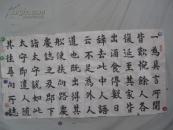 為具言所聞
皆歎惋餘人各
復延至其家皆
出酒食停數日
辭去此中人語
云不足為外人
道也既出得其
船便扶向路處
處誌之及郡下
詣太守說如此
太守即遣人隨
其往尋向所誌